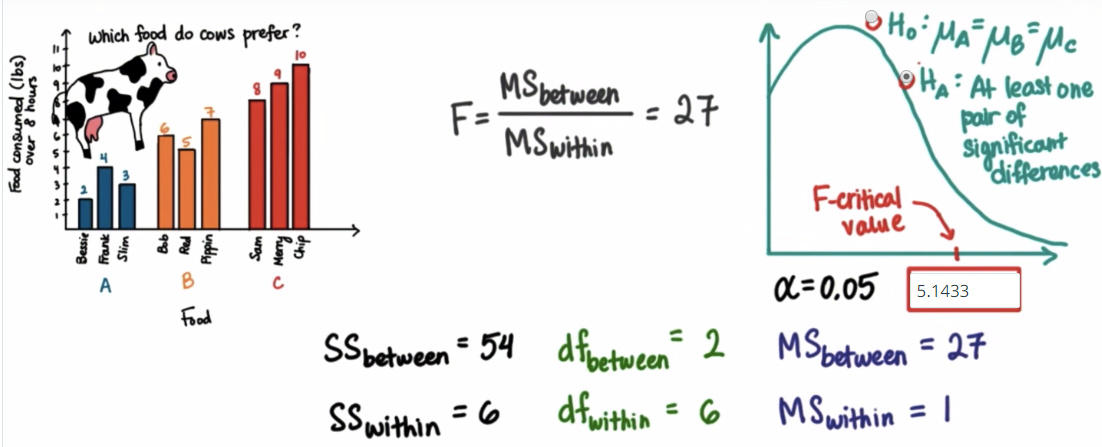 Which food do cows prefer?
Food consumed (lbs)
over 8 hours
11
10
9
8
6
5
4
3
2
1
2
4
3
6
5
7
8
9
10
Bessie
Frank
Slim
Bob
Red
Pippin
Sam
Merry
Chip
A
B
C
Food
F = MSbetween / MSwithin = 27
H₀: μA = μB = μC
HA: At least one
pair of
significant
differences
F-critical
value
α = 0.05
5.1433
SSbetween = 54
dfbetween = 2
MSbetween = 27
SSwithin = 6
dfwithin = 6
MSwithin = 1